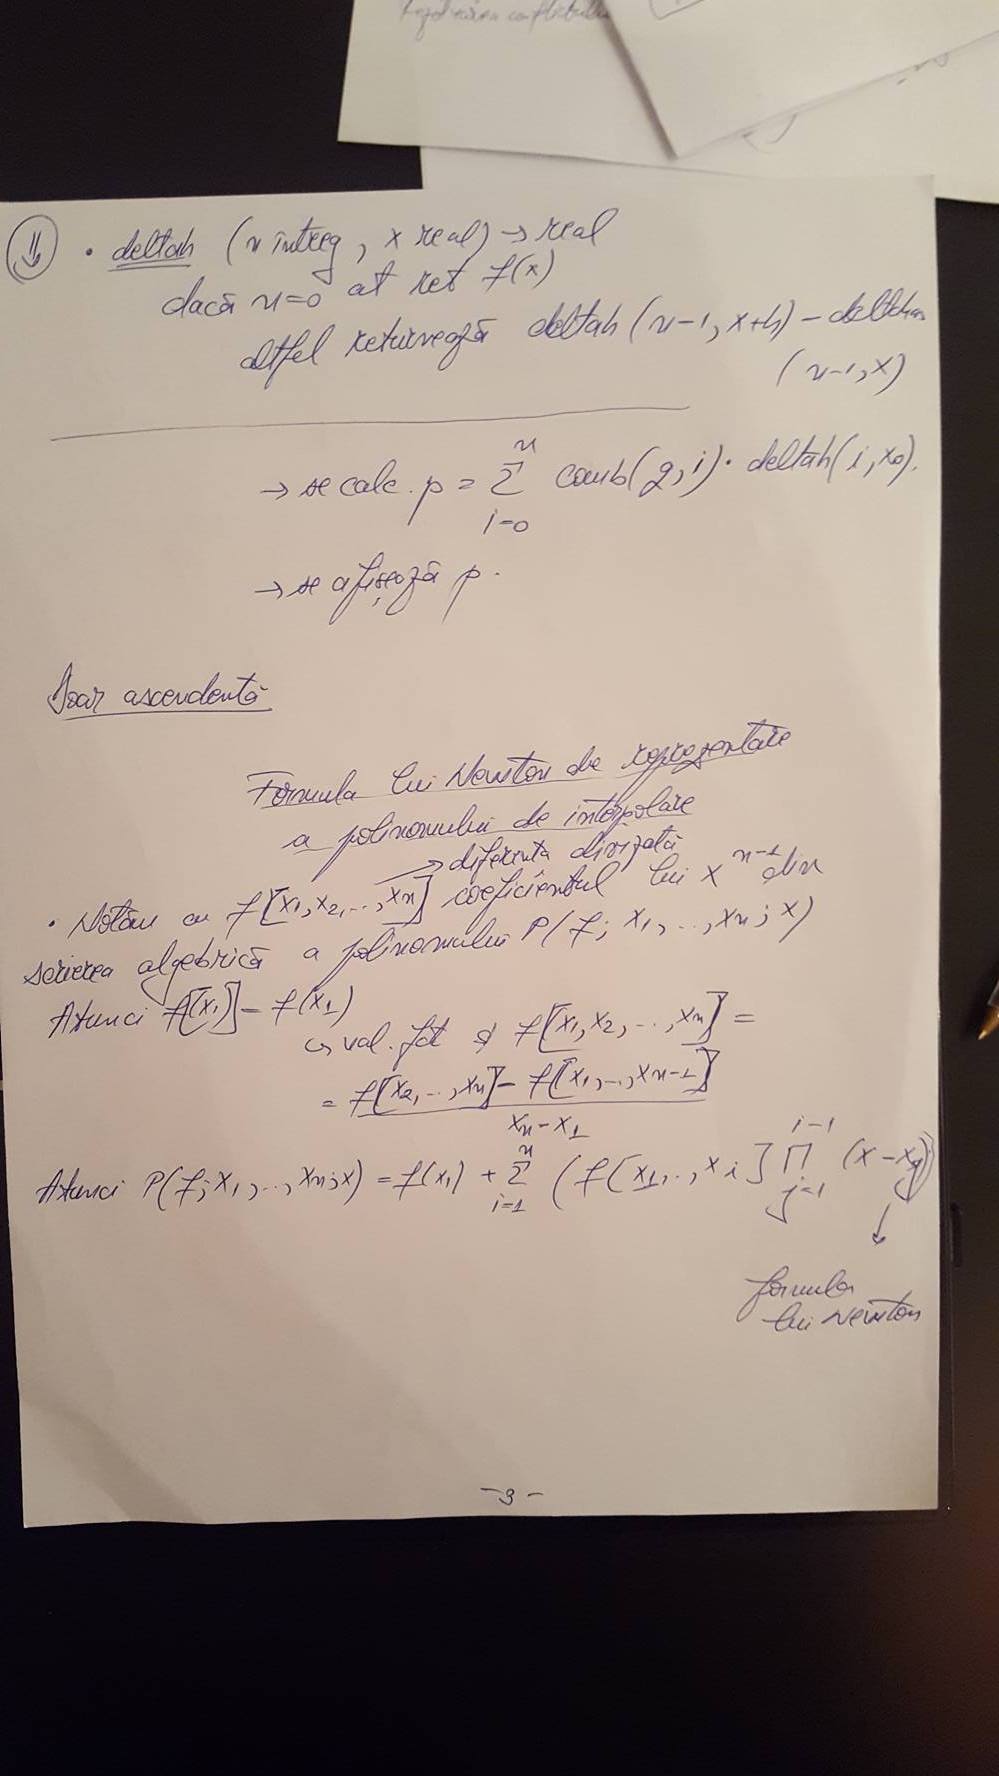 Rezolvarea conflictului
• deltah (n întreg, x real) → real
dacă n=0 at ret f(x)
altfel returnează deltah (n-1, x+h) - deltah
(n-1, x)
→ se calc. p = Σ_{i=0}^{n} comb(q, i) · deltah(i, x0).
→ se afișează p.
ascendentă
Formula lui Newton de reprezentare
a polinomului de interpolare
→ diferența divizată
• Notăm cu f[x1, x2, .., xn] coeficientul lui x^{n-1} din
scrierea algebrică a polinomului P(f; x1, .., xn; x)
Atunci f[x1] = f(x1)
↪ val. fct și f[x1, x2, .., xn] =
= (f[x2, .., xn] - f[x1, .., xn-1]) / (xn - x1)
Atunci P(f; x1, .., xn; x) = f(x1) + Σ_{i=1}^{n} (f[x1, .., xi] ∏_{j=1}^{i-1} (x - xj))
↓
formula
lui Newton
-3-